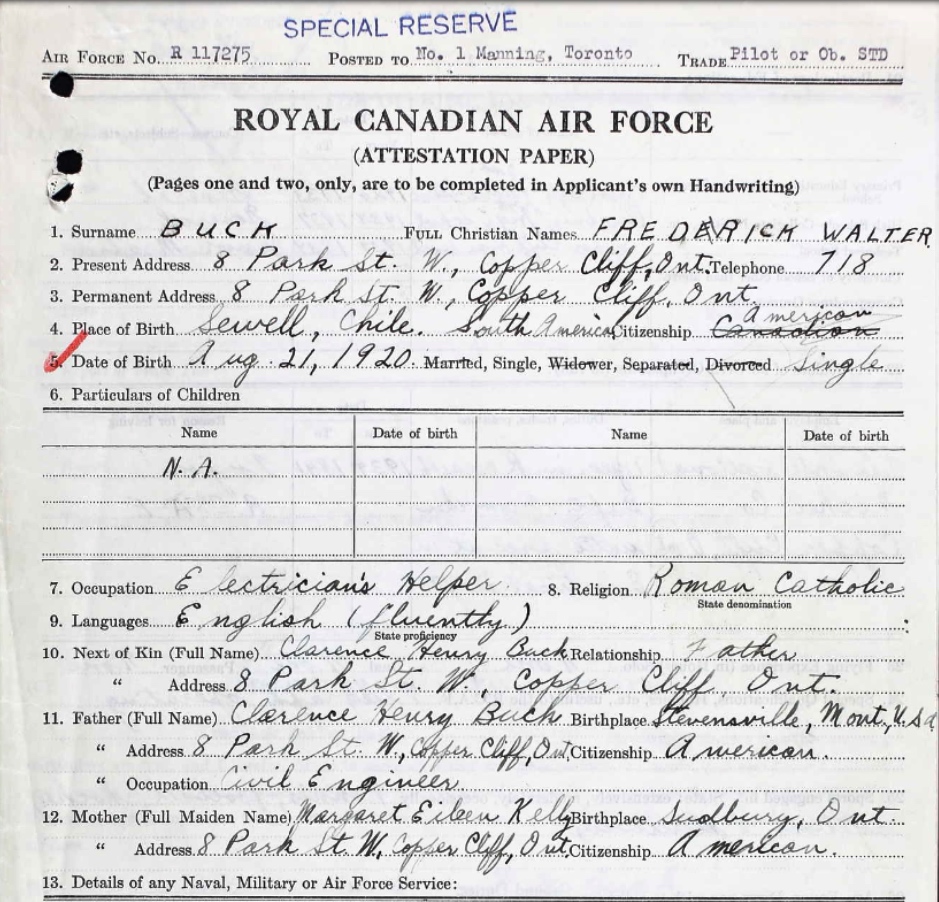 SPECIAL RESERVE
AIR FORCE No. R 117275 POSTED TO No. 1 Manning, Toronto TRADE Pilot or Ob. STD
ROYAL CANADIAN AIR FORCE
(ATTESTATION PAPER)
(Pages one and two, only, are to be completed in Applicant's own Handwriting)
1. Surname BUCK FULL Christian Names FREDERICK WALTER
2. Present Address 8 Park St. W., Copper Cliff, Ont. Telephone 718
3. Permanent Address 8 Park St. W., Copper Cliff, Ont.
American
4. Place of Birth Sewell, Chile. South America Citizenship Canadian
5. Date of Birth Aug. 21, 1920. Married, Single, Widower, Separated, Divorced Single
6. Particulars of Children
Name Date of birth Name Date of birth
N.A.
7. Occupation Electrician's Helper 8. Religion Roman Catholic
State denomination
9. Languages English (fluently)
State proficiency
10. Next of Kin (Full Name) Clarence Henry Buck Relationship Father
" Address 8 Park St. W., Copper Cliff, Ont.
11. Father (Full Name) Clarence Henry Buck Birthplace Stevensville, Mont., U.S.A
" Address 8 Park St. W., Copper Cliff, Ont. Citizenship American.
" Occupation Civil Engineer
12. Mother (Full Maiden Name) Margaret Eileen Kelly Birthplace Sudbury, Ont.
" Address 8 Park St. W, Copper Cliff, Ont. Citizenship American.
13. Details of any Naval, Military or Air Force Service: